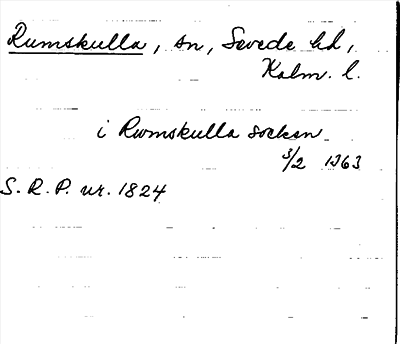 Rumskulla, sn, Sevede hd,
Kalm. l.
i Rwmskulla soken
3/2 1363
S. R. P. nr. 1824